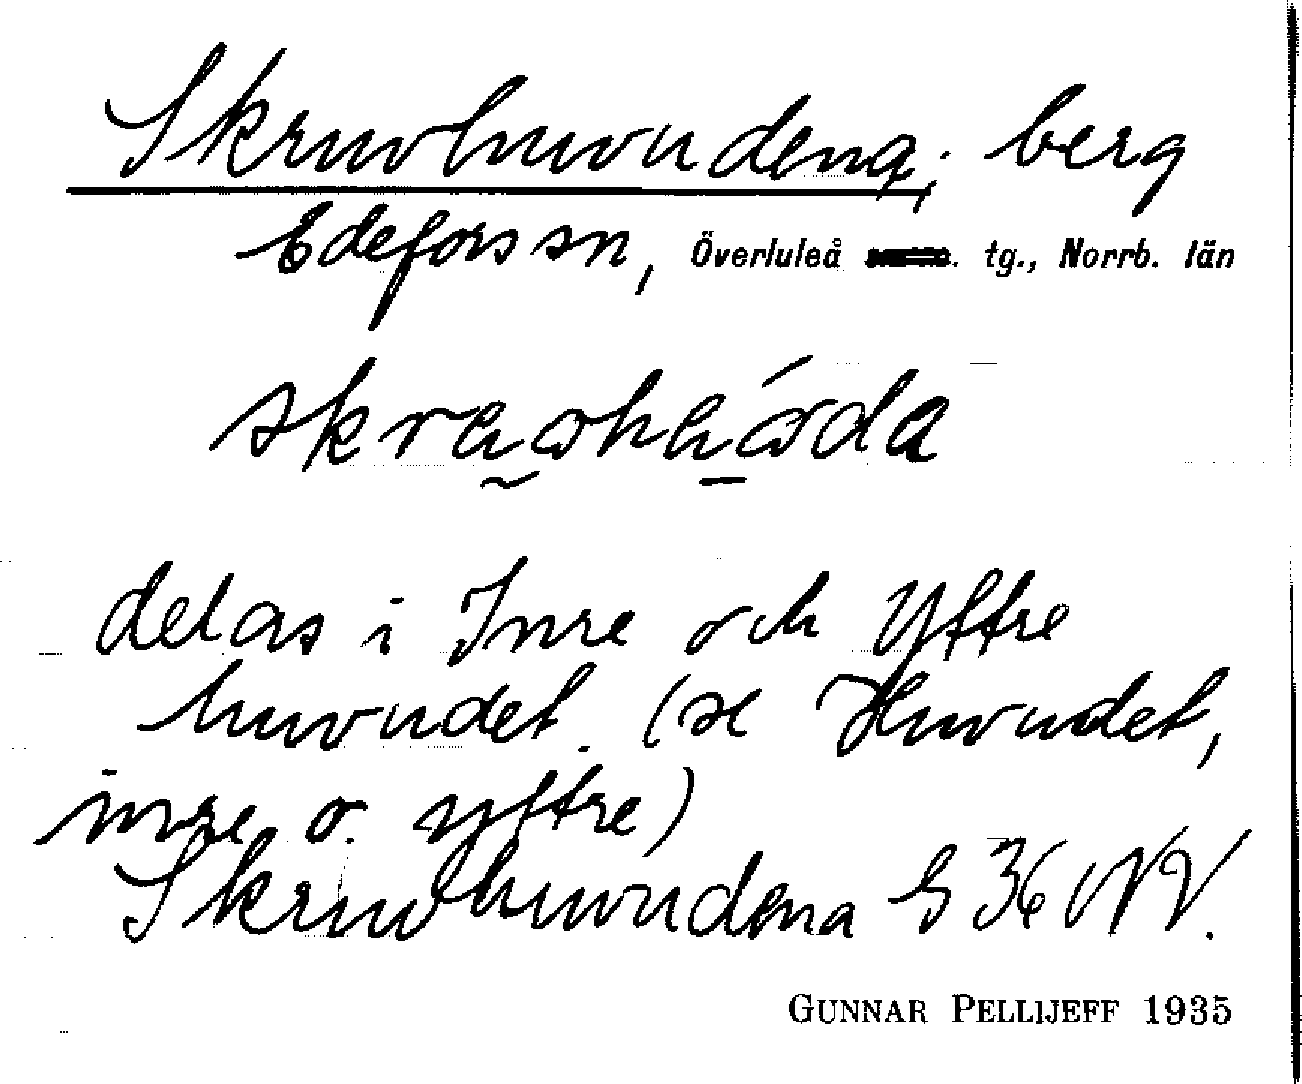 Skruvhuvudena; berg
Edefors sn, Överluleå tg., Norrb. län
delas i Inre och Yttre
huvudet. (se Huvudet,
inre o. yttre)
Skruvhuvudena G 36 NV.
GUNNAR PELLIJEFF 1935